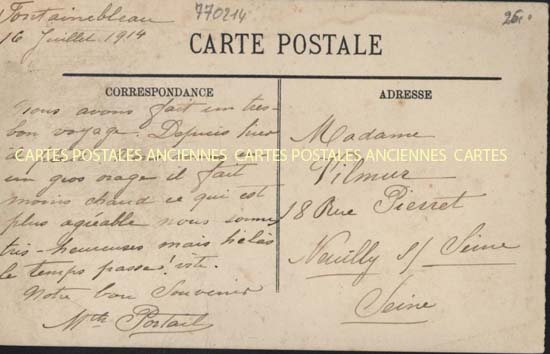 Fontainebleau
16 Juillet 1914
770214
26.
CARTE POSTALE
CORRESPONDANCE
Nous avons fait un très
bon voyage. Depuis hier
CARTES POSTALES ANCIENNES CARTES POSTALES ANCIENNES CARTES
un gros orage il fait
moins chaud ce qui est
plus agréable nous sommes
très-heureuses mais hélas
le temps passe! vite.
Notre bon Souvenir
ADRESSE
Madame
Vilmur
18 Rue Pierret
Neuilly s/ Seine
Seine